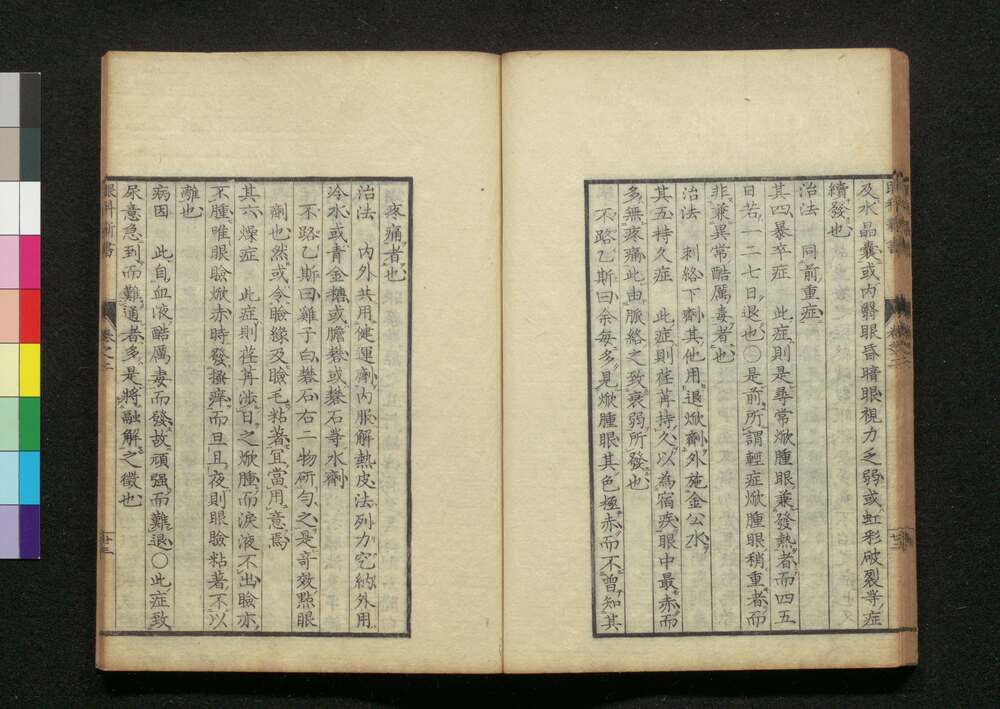 及水晶囊或内翳眼昏暗眼視力乏弱或虹彩破裂等症
續發也
治法 同前重症
其四暴卒症 此症則是尋常焮腫眼兼發熱者而四五
日若一二七日退也〇是前所謂輕症焮腫眼稍重者而
非兼異常酷厲毒者也
治法 刺絡下劑其他用退焮劑外施金公水
其五持久症 此症則荏苒持久以為宿疾眼中最赤而
多無疼痛此由脈絡之致衰弱所發也
不路乙斯曰余每多見焮腫眼其色極赤而不曾知其
疼痛者也
治法 内外共用健運劑内服解熱皮法列力窕納外用
冷水或青金糖或膽礬或礬石等水劑
不路乙斯曰雞子白礬石右二物研勻之是奇效點眼
劑也然或令瞼緣及瞼毛粘著宜當用意焉
其六燥症 此症則荏苒涉日之焮腫而淚液不出瞼亦
不腫唯眼瞼焮赤時發搔痒而旦且夜則眼瞼粘著不以
離也
病因 此自血液酷厲毒而發故頑强而難退〇此症致
尿意急到而難通者多是將融解之徵也
眼科新書 卷之二 廿三